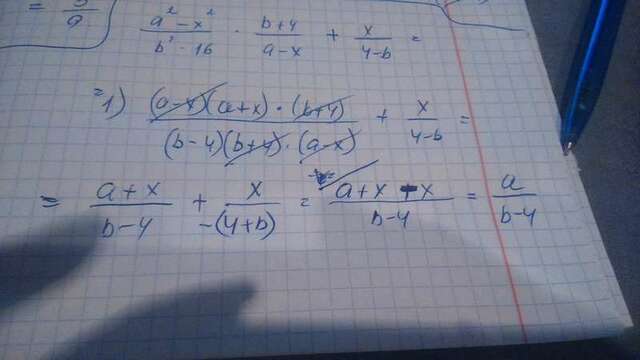 = 3/a
(a² - x²)/(b² - 16) · (b+4)/(a-x) + x/(4-b) =
= 1) ((a-x)(a+x) · (b+4))/((b-4)(b+4) · (a-x)) + x/(4-b) =
= (a+x)/(b-4) + x/(-(4+b)) = (a+x-x)/(b-4) = a/(b-4)